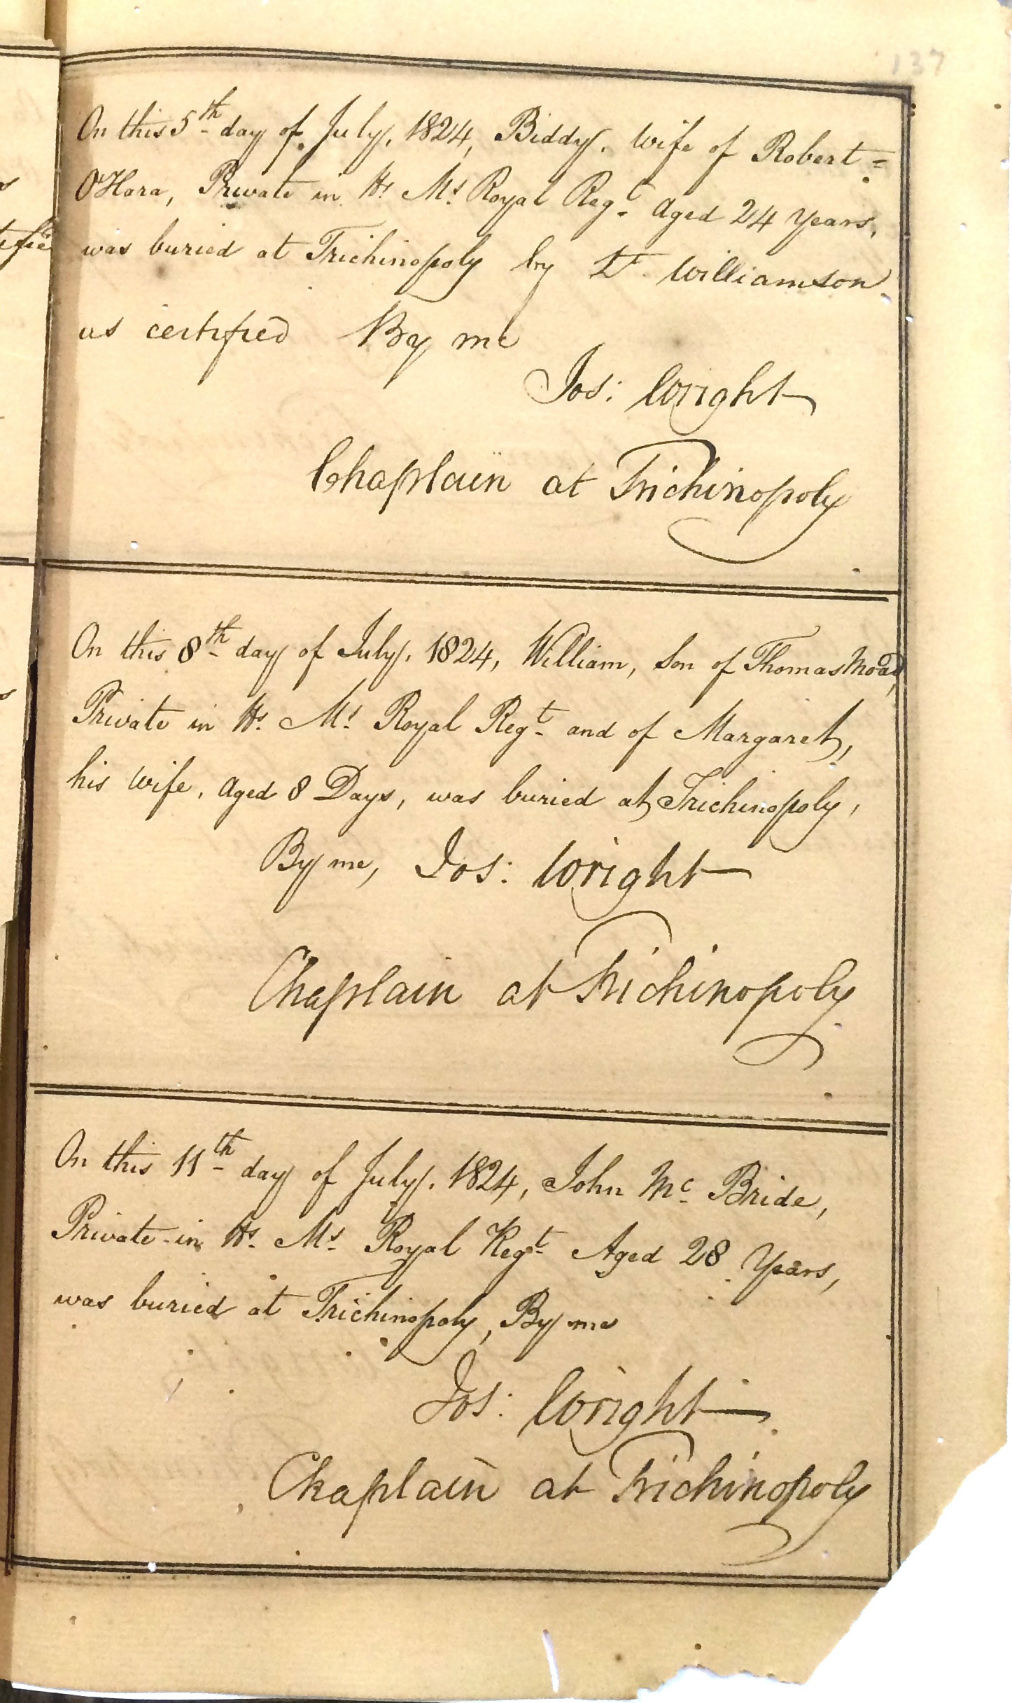 137
On this 5th day of July, 1824, Biddy, Wife of Robert =
O'Hara, Private in Hs Ms Royal Regt Aged 24 Years,
was buried at Trichinopoly by Lt Williamson
as certified By me
Jos: Wright
Chaplain at Trichinopoly
On this 8th day of July, 1824, William, Son of Thomas Moad,
Private in Hs Ms Royal Regt and of Margaret,
his Wife, Aged 8 Days, was buried at Trichinopoly,
By me, Jos: Wright
Chaplain at Trichinopoly
On this 11th day of July, 1824, John Mc Bride,
Private in Hs Ms Royal Regt Aged 28 Years,
was buried at Trichinopoly, By me
Jos: Wright
Chaplain at Trichinopoly